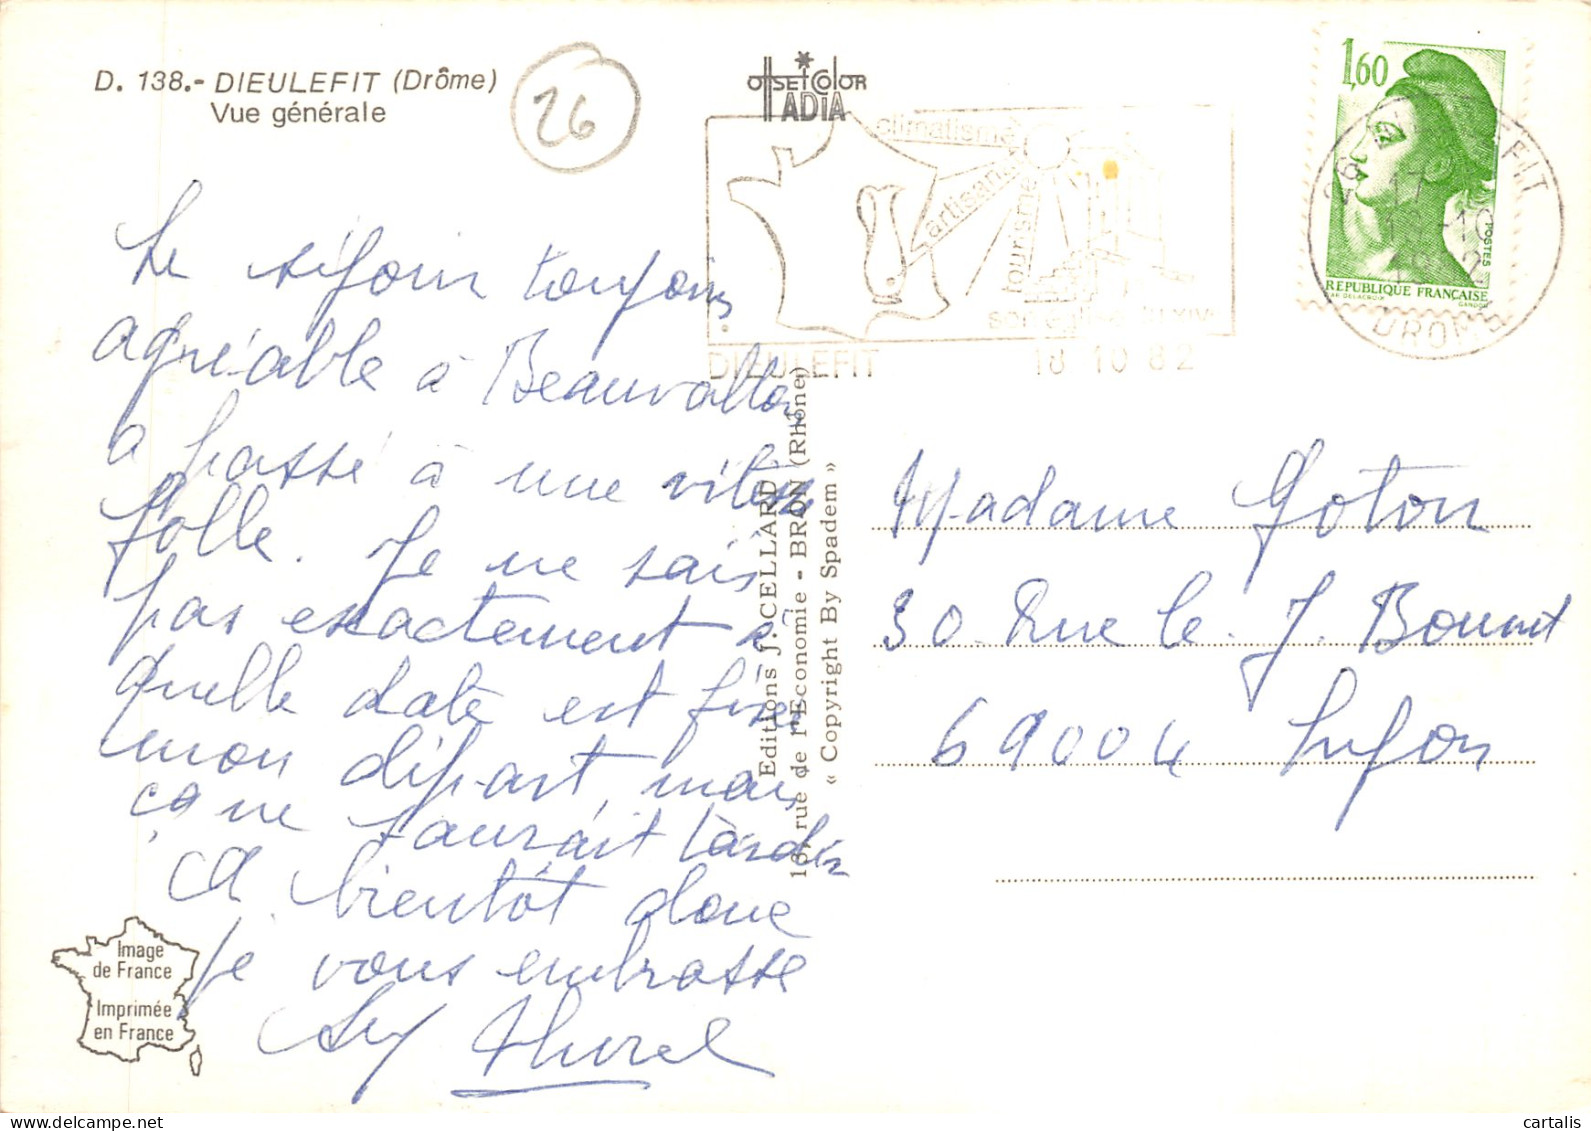 D. 138.- DIEULEFIT (Drôme)
Vue générale
26
OffSetColor
ADIA
climatisme
artisanat
tourisme
son église du XIVe
DIEULEFIT
18 10 82
1,60
POSTES
REPUBLIQUE FRANÇAISE
D'AP. DELACROIX
GANDON
26 DIEULEFIT
17 H
18 -10
1982
DROME
Le séjour toujours
agréable à Beauvallon
a passé à une vitesse
folle. Je ne sais
pas exactement à
quelle date est fixé
mon départ, mais
ça ne saurait tarder
A bientôt donc
je vous embrasse
Editions J. CELLARD
18, rue de l'Economie - BRON (Rhône)
« Copyright By Spadem »
Madame Goton
30 Rue le. J. Bonnet
69004 Lyon
Image
de France
Imprimée
en France
cartalis
delcampe.net